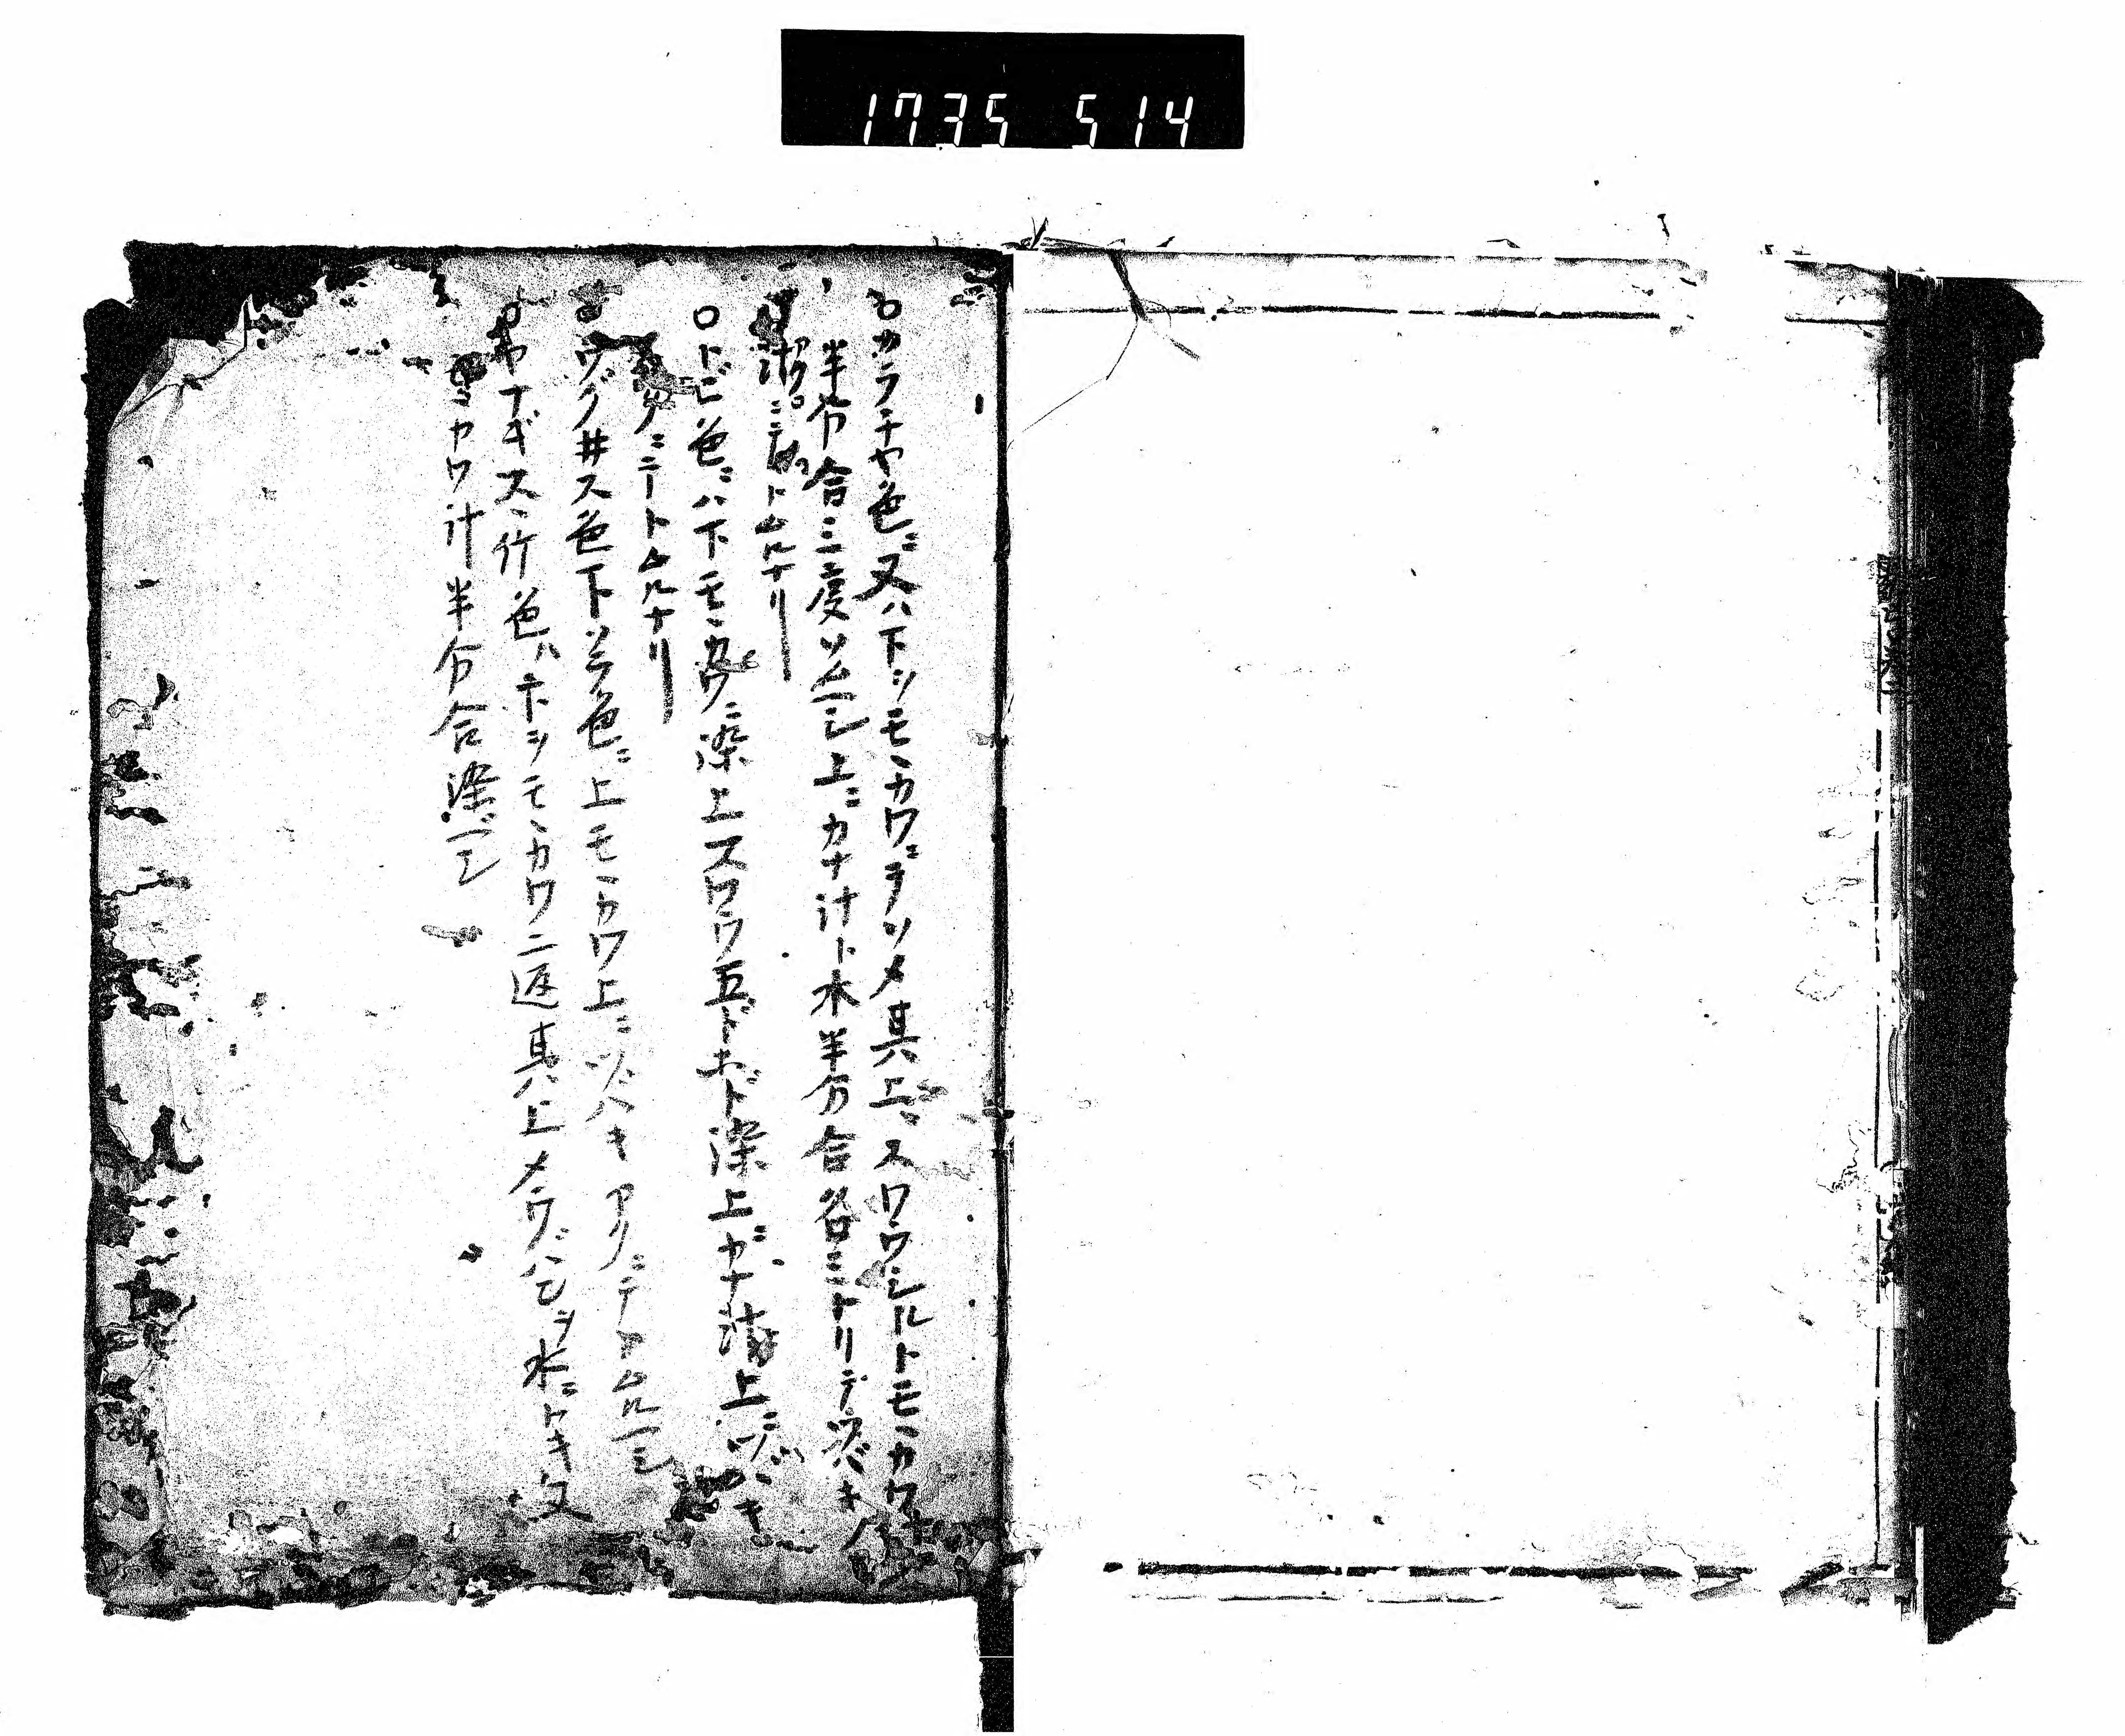 1735 514
○カラチヤ色ニ又ハ下ツモヽカワニテソメ其上ニスワウシルトモヽカワ
半分合ニ三度ソムベシ上ニカナ汁ト水半分合谷ミトリデツバキ
トムルナリ
○トビ色ニハ下モヽカワニ染上スワウ五ドホド染上ニカナ 上ニツバキ
アクニテトムルナリ
○ウグ井ス色下ソラ色ニ上モヽカワ上ニツバキアクニテトムルベシ
○ヤナギスヽ竹色ハホシモヽカワ二返其上メウバンヲ水ニトキ又
カワ汁半分合染ベシ